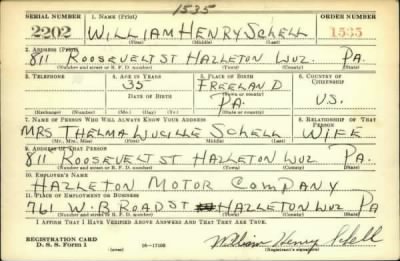 1535
SERIAL NUMBER 1. NAME (Print) ORDER NUMBER
2202 WILLIAM HENRY SCHELL 1535
(First) (Middle) (Last)
2. ADDRESS (Print)
811 ROOSEVELT ST HAZLETON LUZ. PA.
(Number and street or R. F. D. number) (Town) (County) (State)
3. TELEPHONE 4. AGE IN YEARS 5. PLACE OF BIRTH 6. COUNTRY OF CITIZENSHIP
35 FREELAND
DATE OF BIRTH (Town or county)
PA. U.S.
(Exchange) (Number) (Mo.) (Day) (Yr.) (State or country)
7. NAME OF PERSON WHO WILL ALWAYS KNOW YOUR ADDRESS 8. RELATIONSHIP OF THAT PERSON
MRS THELMA LUCILLE SCHELL WIFE
(Mr., Mrs., Miss) (First) (Middle) (Last)
9. ADDRESS OF THAT PERSON
811 ROOSEVELT ST HAZLETON LUZ. PA.
(Number and street or R. F. D. number) (Town) (County) (State)
10. EMPLOYER'S NAME
HAZLETON MOTOR COMPANY
11. PLACE OF EMPLOYMENT OR BUSINESS
761 W. B ROAD ST HAZLETON LUZ PA
(Number and street or R. F. D. number) (Town) (County) (State)
I AFFIRM THAT I HAVE VERIFIED ABOVE ANSWERS AND THAT THEY ARE TRUE.
REGISTRATION CARD
D. S. S. Form 1 (over) 16-17105 William Henry Schell
(Registrant's signature)